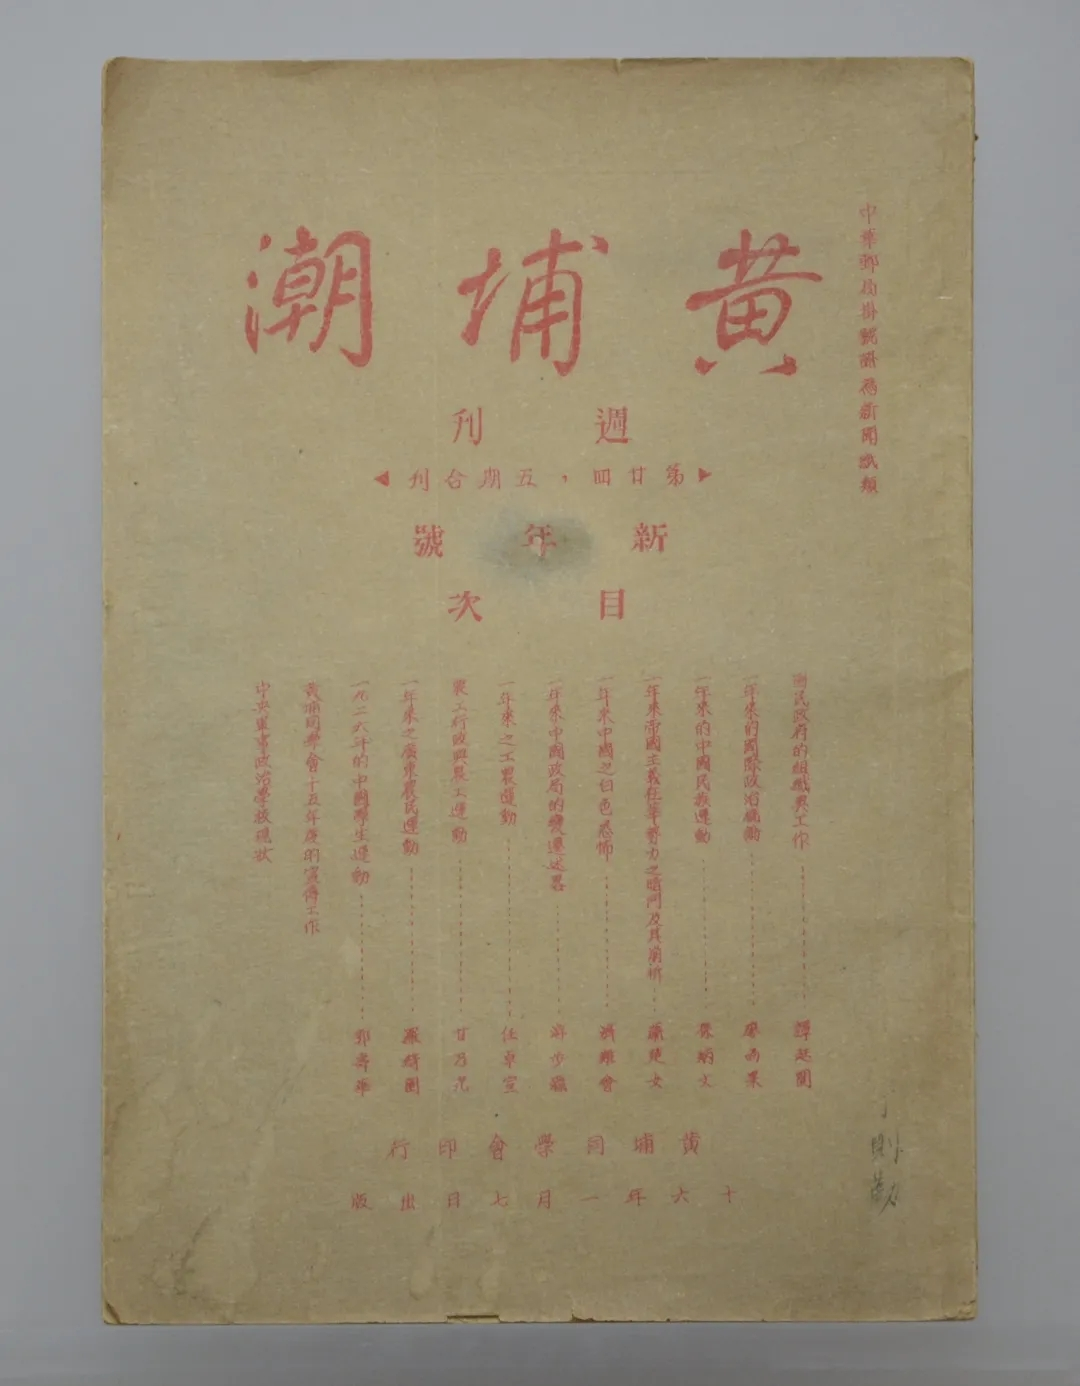 中華郵局掛號認為新聞紙類
黃埔潮
週刊
第廿四，五期合刊
新年號
目次
國民政府的組織與工作……譚延闓
一年來的國際政治變動……
一年來的中國民族運動……
一年來帝國主義在華勢力之暗鬥及其崩析……蕭楚女
一年來中國之白色恐怖……濟難會
一年來中國政局的變遷述畧……游步瀛
一年來之工農運動……任卓宣
農工行政與農工運動……甘乃光
一年來之廣東農民運動……羅綺園
一九二六年的中國學生運動……郭壽華
黃埔同學會十五年度的宣傳工作
中央軍事政治學校現狀
黃埔同學會印行
十六年一月七日出版